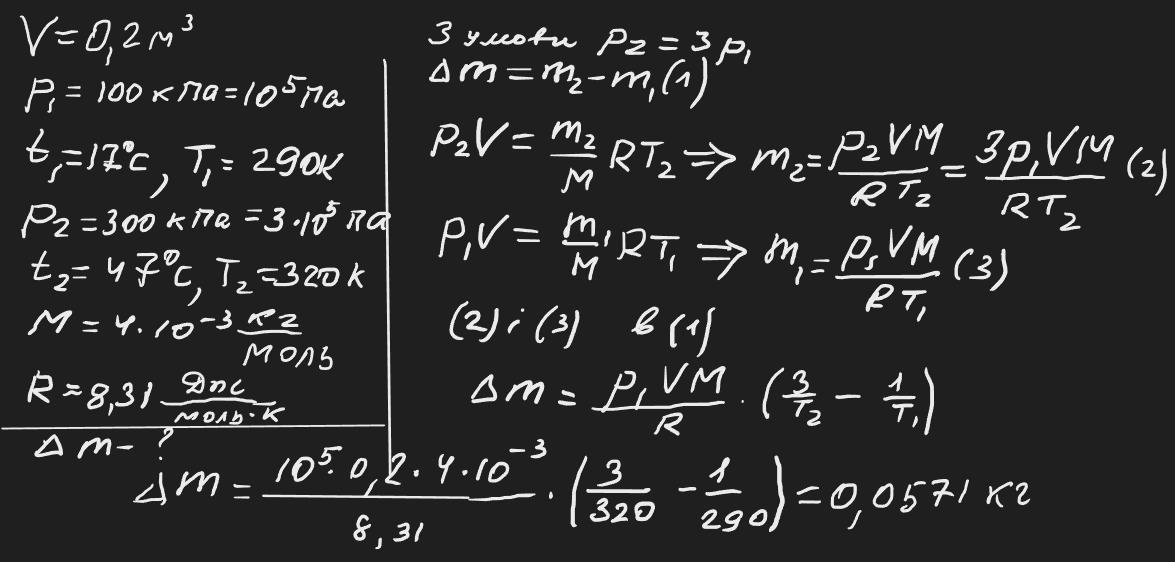 V=0,2м³
P₁=100кПа=10⁵Па
t₁=17°C, T₁=290K
P₂=300кПа=3·10⁵Па
t₂=47°C, T₂=320K
M=4·10⁻³ кг/моль
R=8,31 Дж/моль·К
Δm-?
З умови P₂=3p₁
Δm=m₂-m₁(1)
P₂V=m₂/M RT₂ => m₂=P₂VM/RT₂=3P₁VM/RT₂ (2)
P₁V=m₁/M RT₁ => m₁=P₁VM/RT₁ (3)
(2) і (3) в (1)
Δm=P₁VM/R·(3/T₂-1/T₁)
Δm=10⁵·0,2·4·10⁻³/8,31·(3/320-1/290)=0,0571 кг